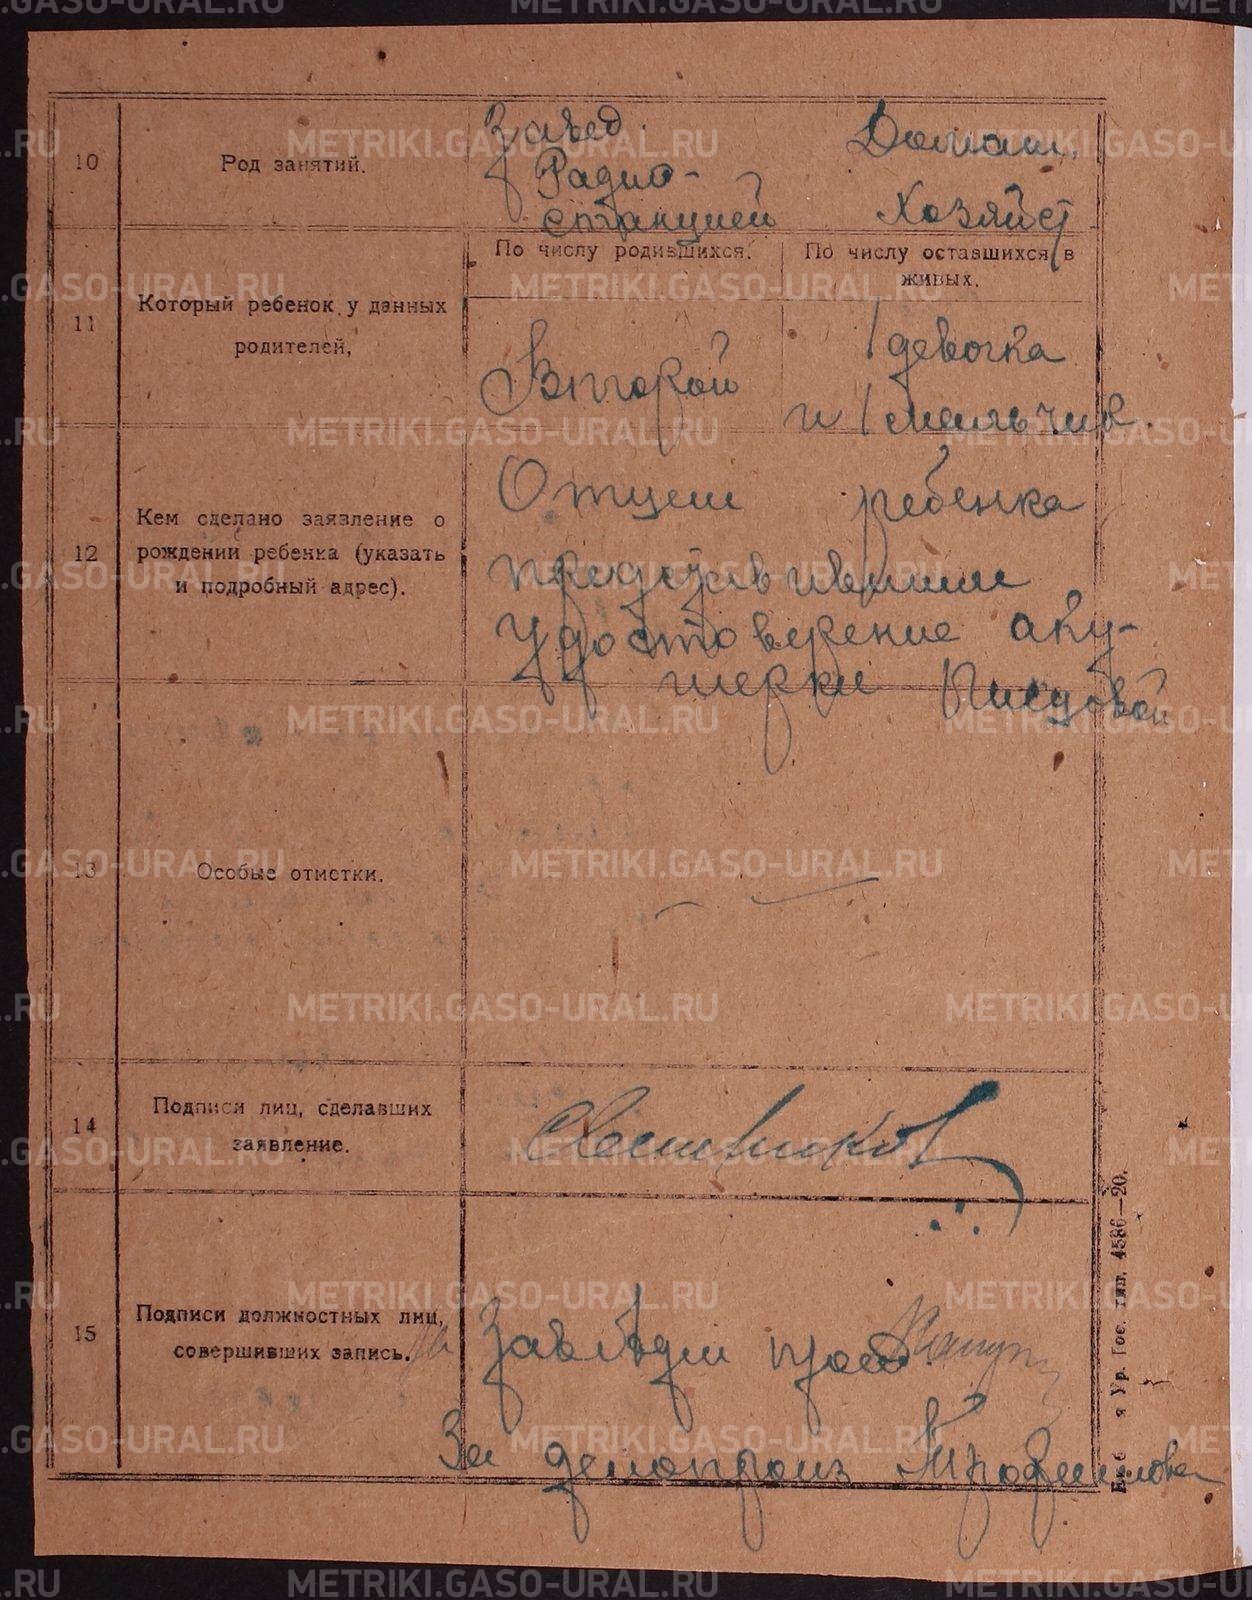 10
Род занятий.
Завед.
Радио-
станцией
Домаш.
Хозяйст
11
Который ребенок у данных
родителей,
По числу родившихся.
По числу оставшихся в
живых.
Второй
1 девочка
и 1 мальчик.
12
Кем сделано заявление о
рождении ребенка (указать
и подробный адрес).
Отцем ребенка
представившим
удостоверение аку-
шерки
13
Особые отметки.
14
Подписи лиц, сделавших
заявление.
15
Подписи должностных лиц,
совершивших запись.
За делопроиз Трофимова
Ур. Гос. тип. 4586—20.
METRIKI.GASO-URAL.RU